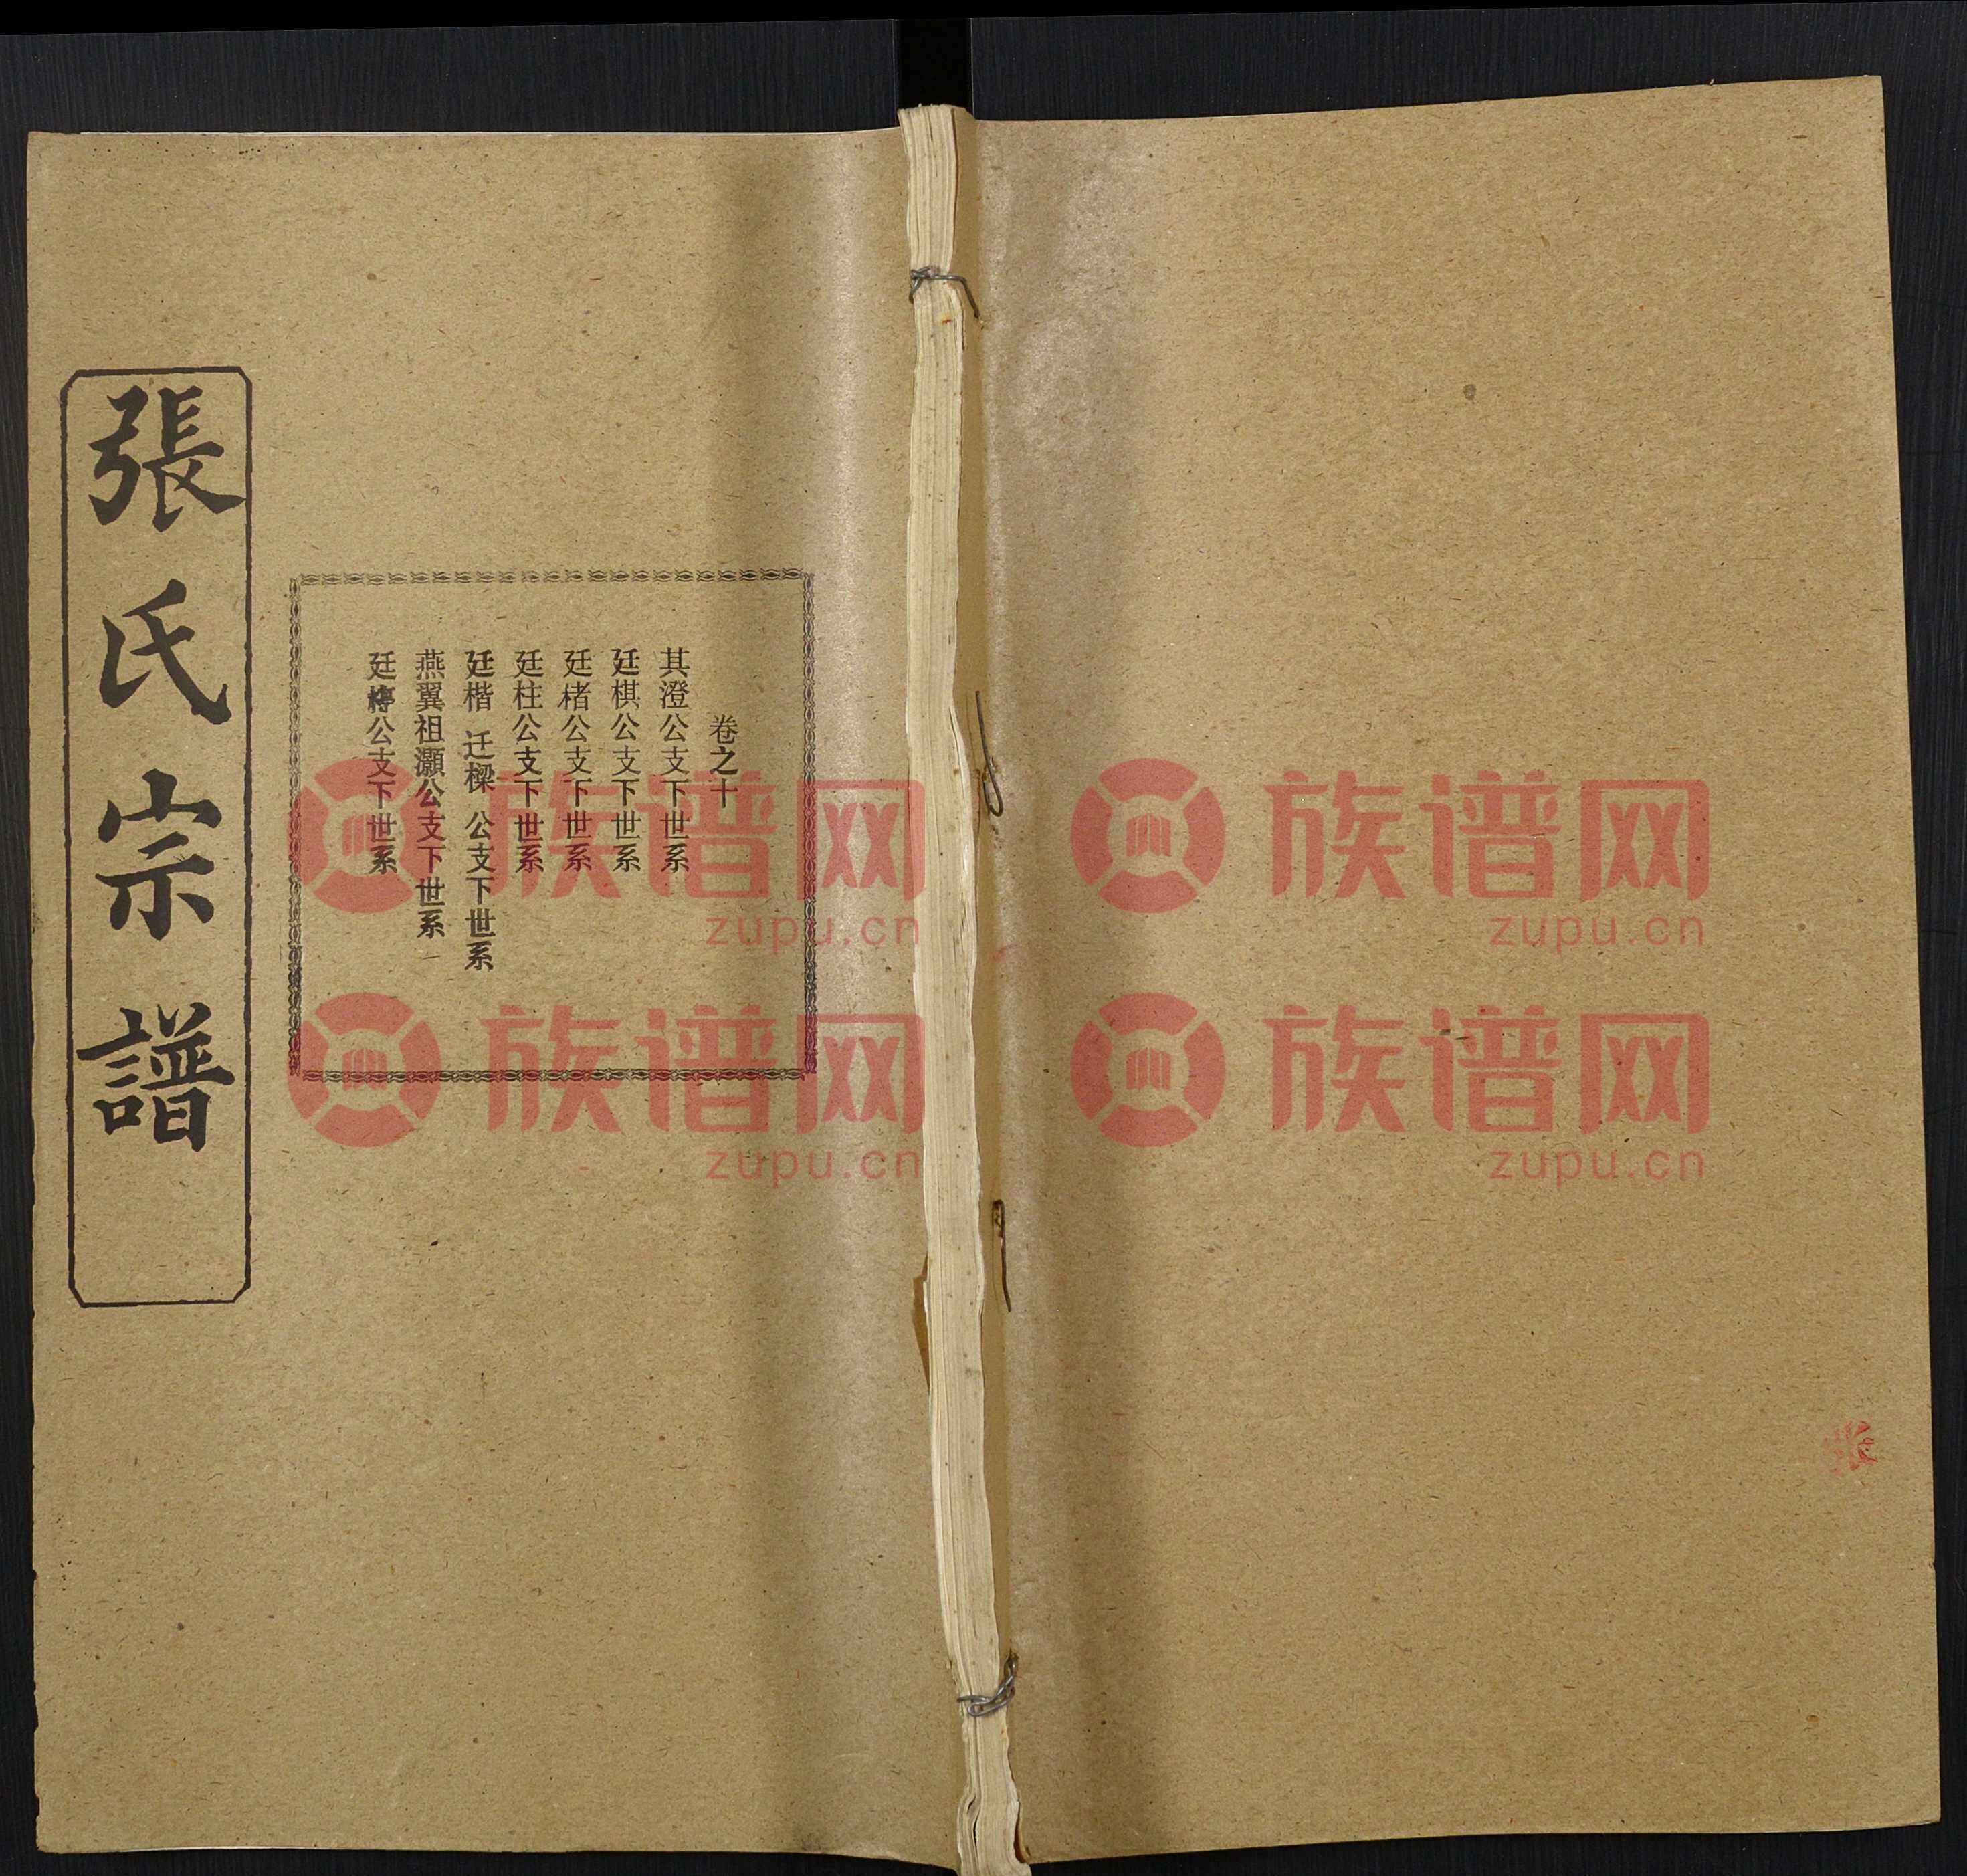 張氏宗譜
卷之十
其澄公支下世系
廷棋公支下世系
廷楮公支下世系
廷柱公支下世系
廷楷 迁樑 公支下世系
燕翼祖灝公支下世系
廷公支下世系
族谱网
zupu.cn
族谱网
zupu.cn
族谱网
zupu.cn
族谱网
zupu.cn